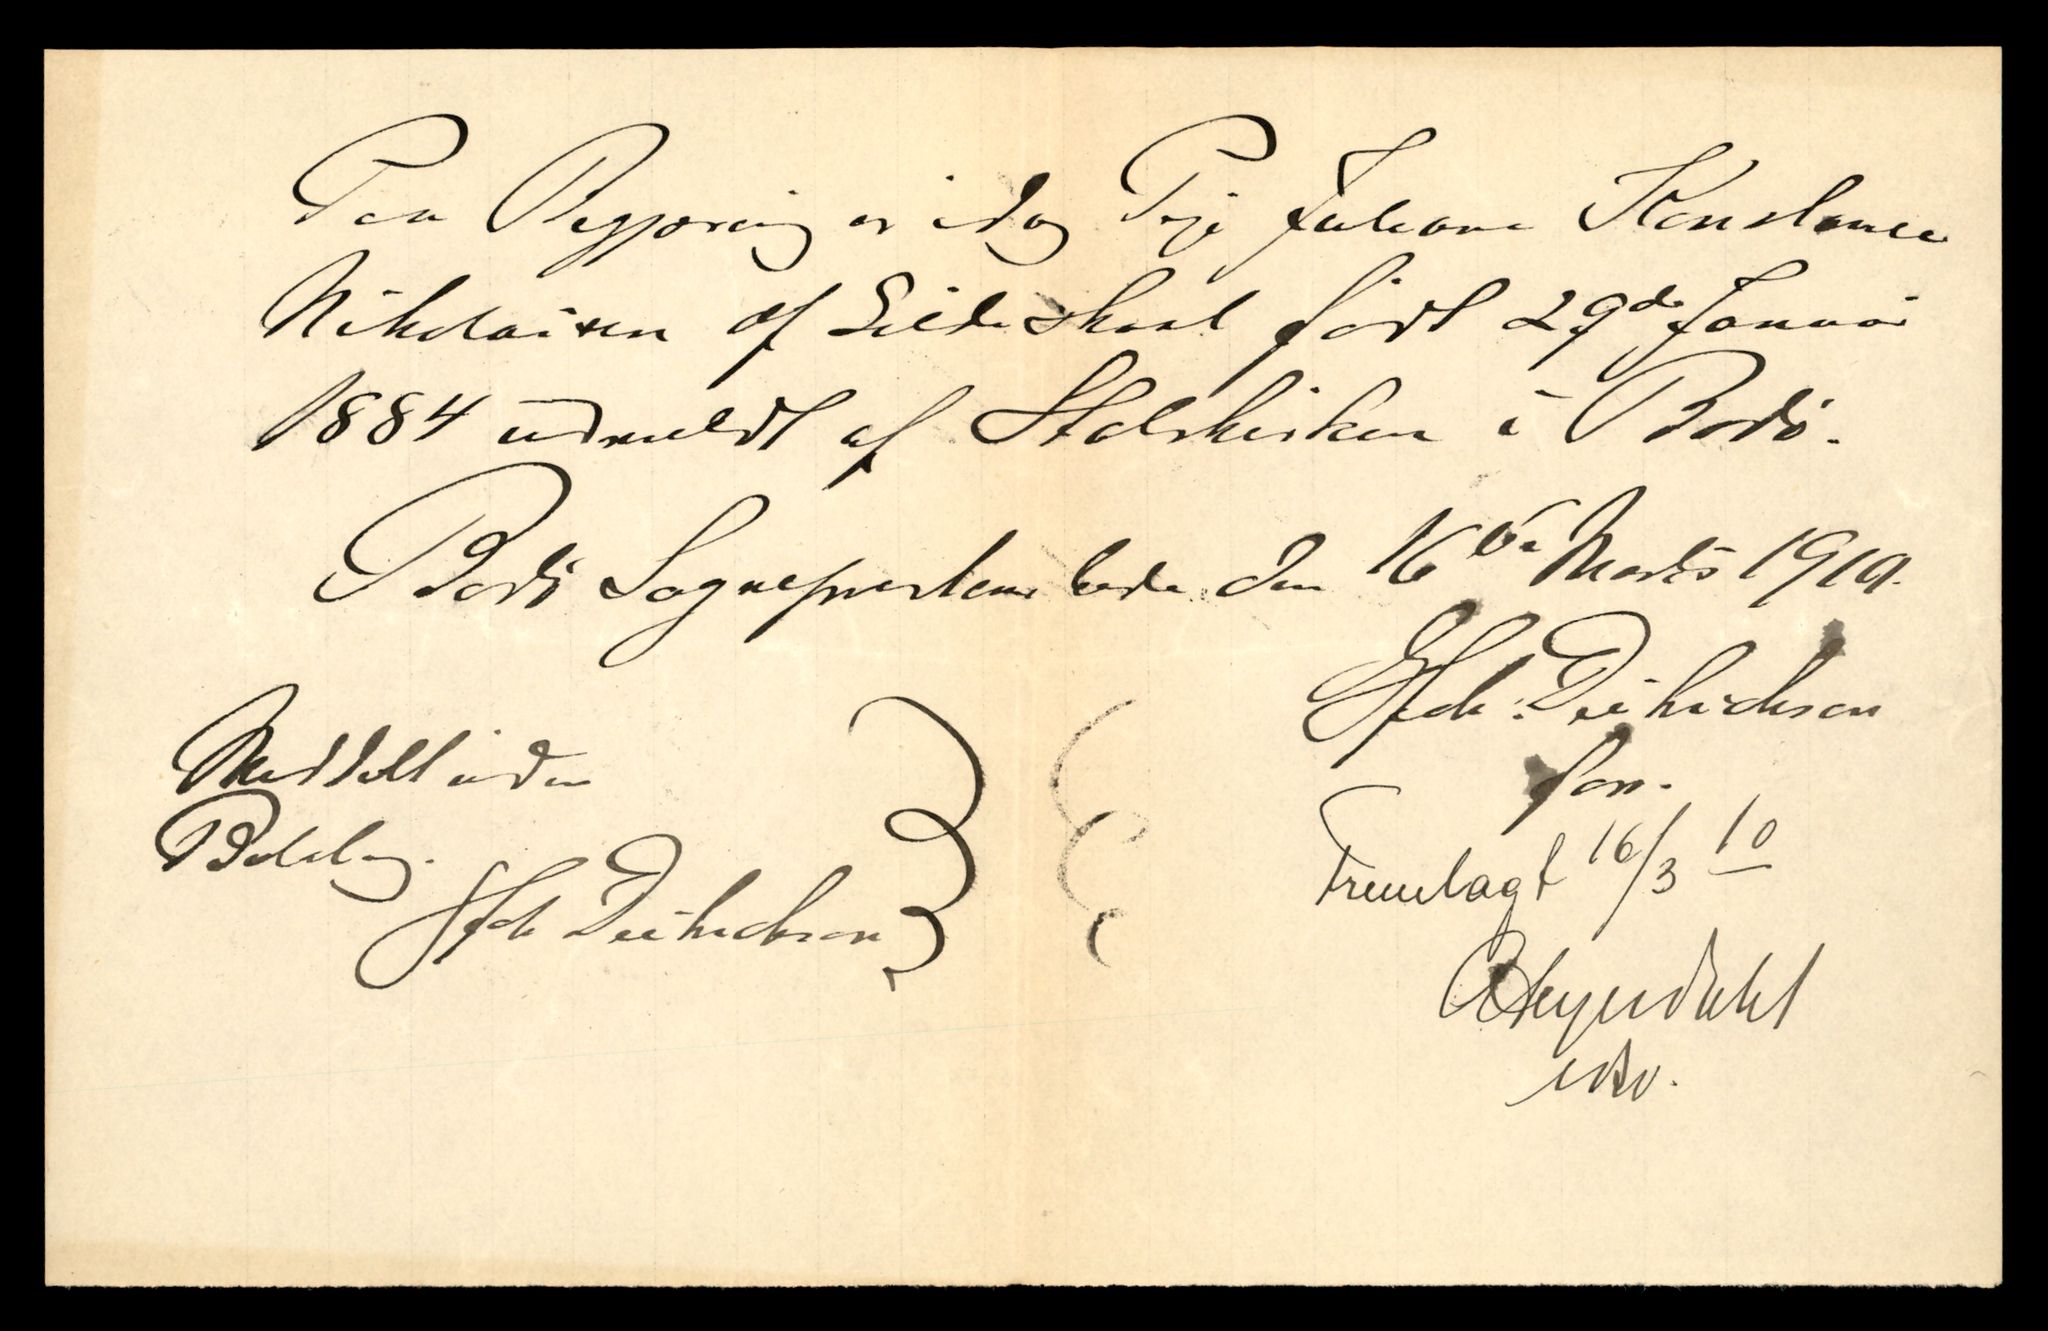 Paa Begjæring er idag Pige Juliane Konstanse
Nikolaisen af Gildeskaal födt 29de Januar
1884 udmeldt af Statskirken i Bodö.
Bodö Sogneprestembede den 16de Marts 1910.
Fredr: Diedrichson
fon.
Meddelt uden
Betaling.
Fredr Diedrichson
Fremlagt 16/3 10